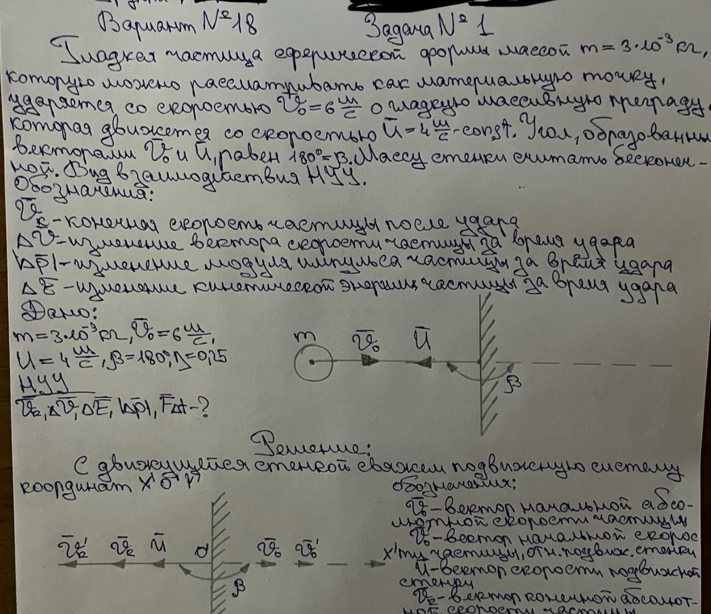 Вариант №18 Задача №1
Гладкая частица сферической формы массой m = 3·10⁻³ кг,
которую можно рассматривать как материальную точку,
ударяется со скоростью V̄₀=6 м/с о гладкую массивную преграду,
которая движется со скоростью Ū=4 м/с-const. Угол, образованны
векторами V̄₀ и Ū, равен 180°=β. Массу стенки считать бесконеч-
ной. Вид взаимодействия НУУ.
Обозначения:
V̄к-конечная скорость частицы после удара
ΔV̄-изменение вектора скорости частицы за время удара
|Δp̄|-изменение модуля импульса частицы за время удара
ΔE-изменение кинетической энергии частицы за время удара
Дано:
m=3·10⁻³ кг, V̄₀=6 м/с,
U=4 м/с, β=180°, =0,25
НУУ
V̄к, ΔV̄, ΔE, |Δp̄|, F̄Δt-?
m V̄₀ Ū β
Решение:
С движущейся стенкой свяжем подвижную систему
координат x'o'y'
V̄к' V̄к Ū o' V̄₀ V̄₀' x'
β
обозначения:
V̄₀-вектор начальной абсо-
лютной скорости частицы
V̄₀'-вектор начальной скорос
ти частицы, отн. подвиж. стенки
Ū-вектор скорости подвижной
стенки
V̄к-вектор конечной абсолют-
ной скорости частицы